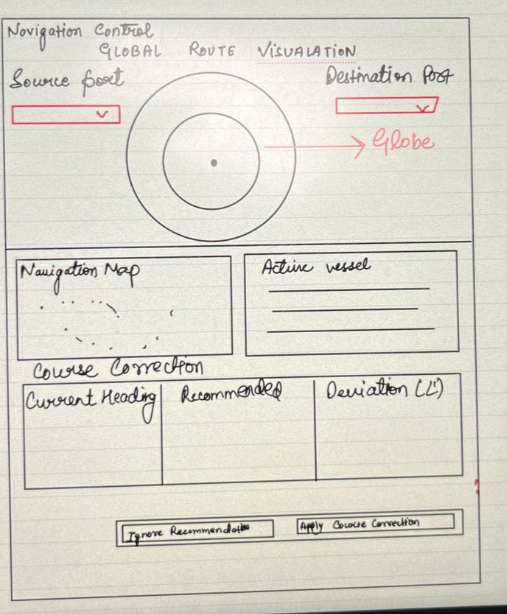 Navigation Control
GLOBAL ROUTE VISUALATION
Source port
Destination Port
Globe
Navigation Map
Active vessel
Course Correction
Current Heading
Recommended
Deviation (L')
Ignore Recommendation
Apply Cocurse Correction